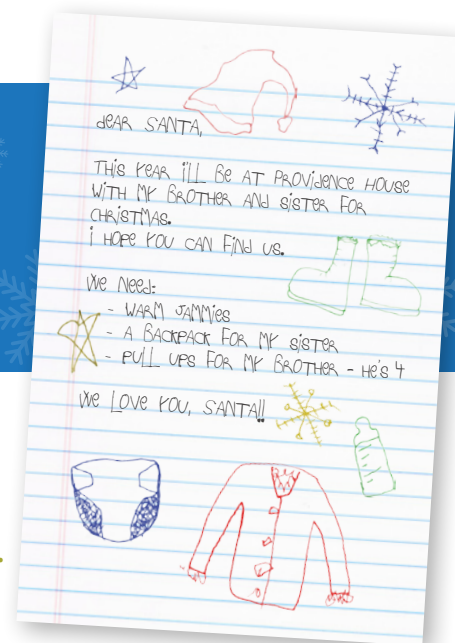 dEAR SANTA,
THiS YEAR i'LL BE AT PROVidENCE HOUSE
WiTH MY BROTHER ANd SiSTER FOR
CHRiSTMAS.
i HOPE YOU CAN FiNd US.
WE NEEd:
- WARM JAMMiES
- A BACKPACK FOR MY SiSTER
- PULL UPS FOR MY BROTHER - HE'S 4
WE LOVE YOU, SANTA!!